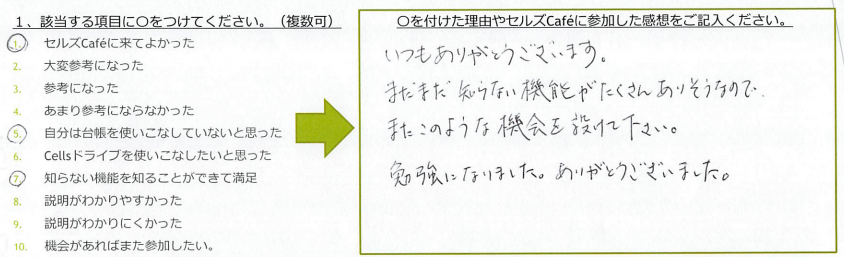 １、該当する項目に〇をつけてください。（複数可）
1. セルズCaféに来てよかった
2. 大変参考になった
3. 参考になった
4. あまり参考にならなかった
5. 自分は台帳を使いこなしていないと思った
6. Cellsドライブを使いこなしたいと思った
7. 知らない機能を知ることができて満足
8. 説明がわかりやすかった
9. 説明がわかりにくかった
10. 機会があればまた参加したい。
〇を付けた理由やセルズCaféに参加した感想をご記入ください。
いつもありがとうございます。
まだまだ知らない機能がたくさんありそうなので、
またこのような機会を設けて下さい。
勉強になりました。ありがとうございました。